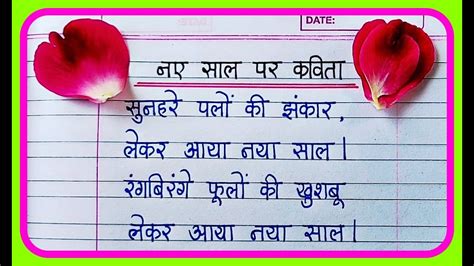 DATE:
नए साल पर कविता
सुनहरे पलों की झंकार,
लेकर आया नया साल।
रंगबिरंगे फूलों की खुशबू
लेकर आया नया साल।